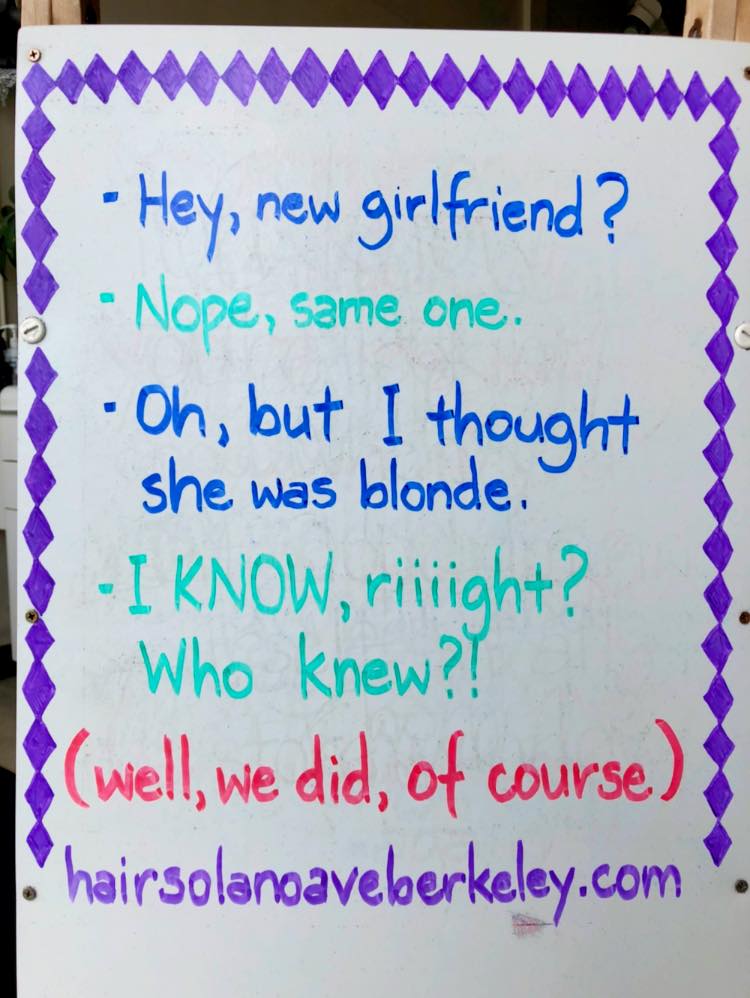 - Hey, new girlfriend?
- Nope, same one.
- Oh, but I thought
she was blonde.
- I KNOW, riiiight?
Who knew?!
(well, we did, of course)
hairsolanoaveberkeley.com